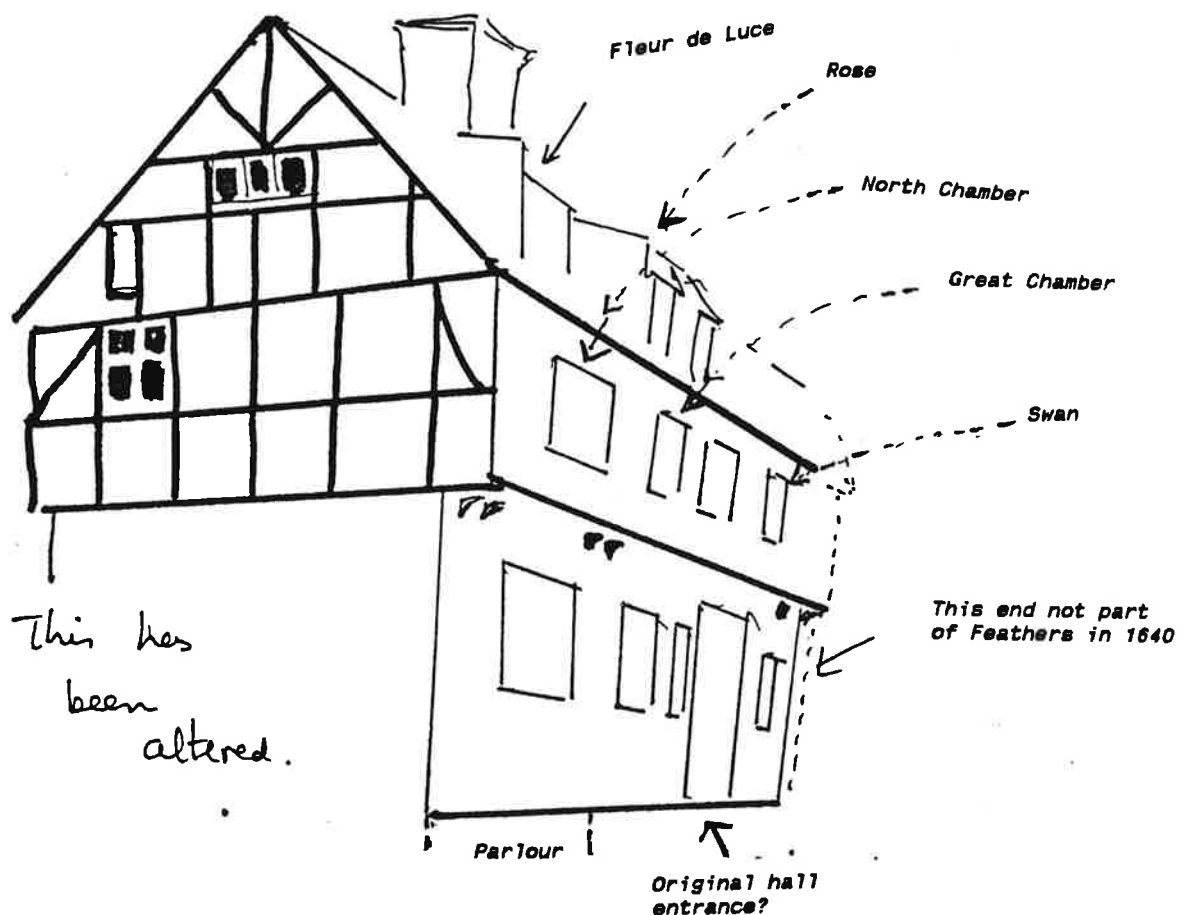 Fleur de Luce
Rose
North Chamber
Great Chamber
Swan
This end not part
of Feathers in 1640
This has
been
altered.
Parlour
Original hall
entrance?